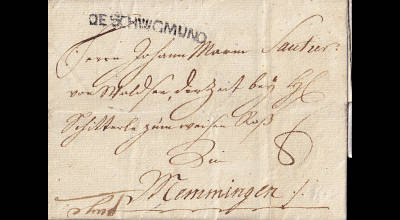 DE SCHW:GMUND
Herrn Johann Martin Sautier:
von Waldsee, derzeit bey H:
Schitterle zum weisen Roß
Zu
Memmingen /.